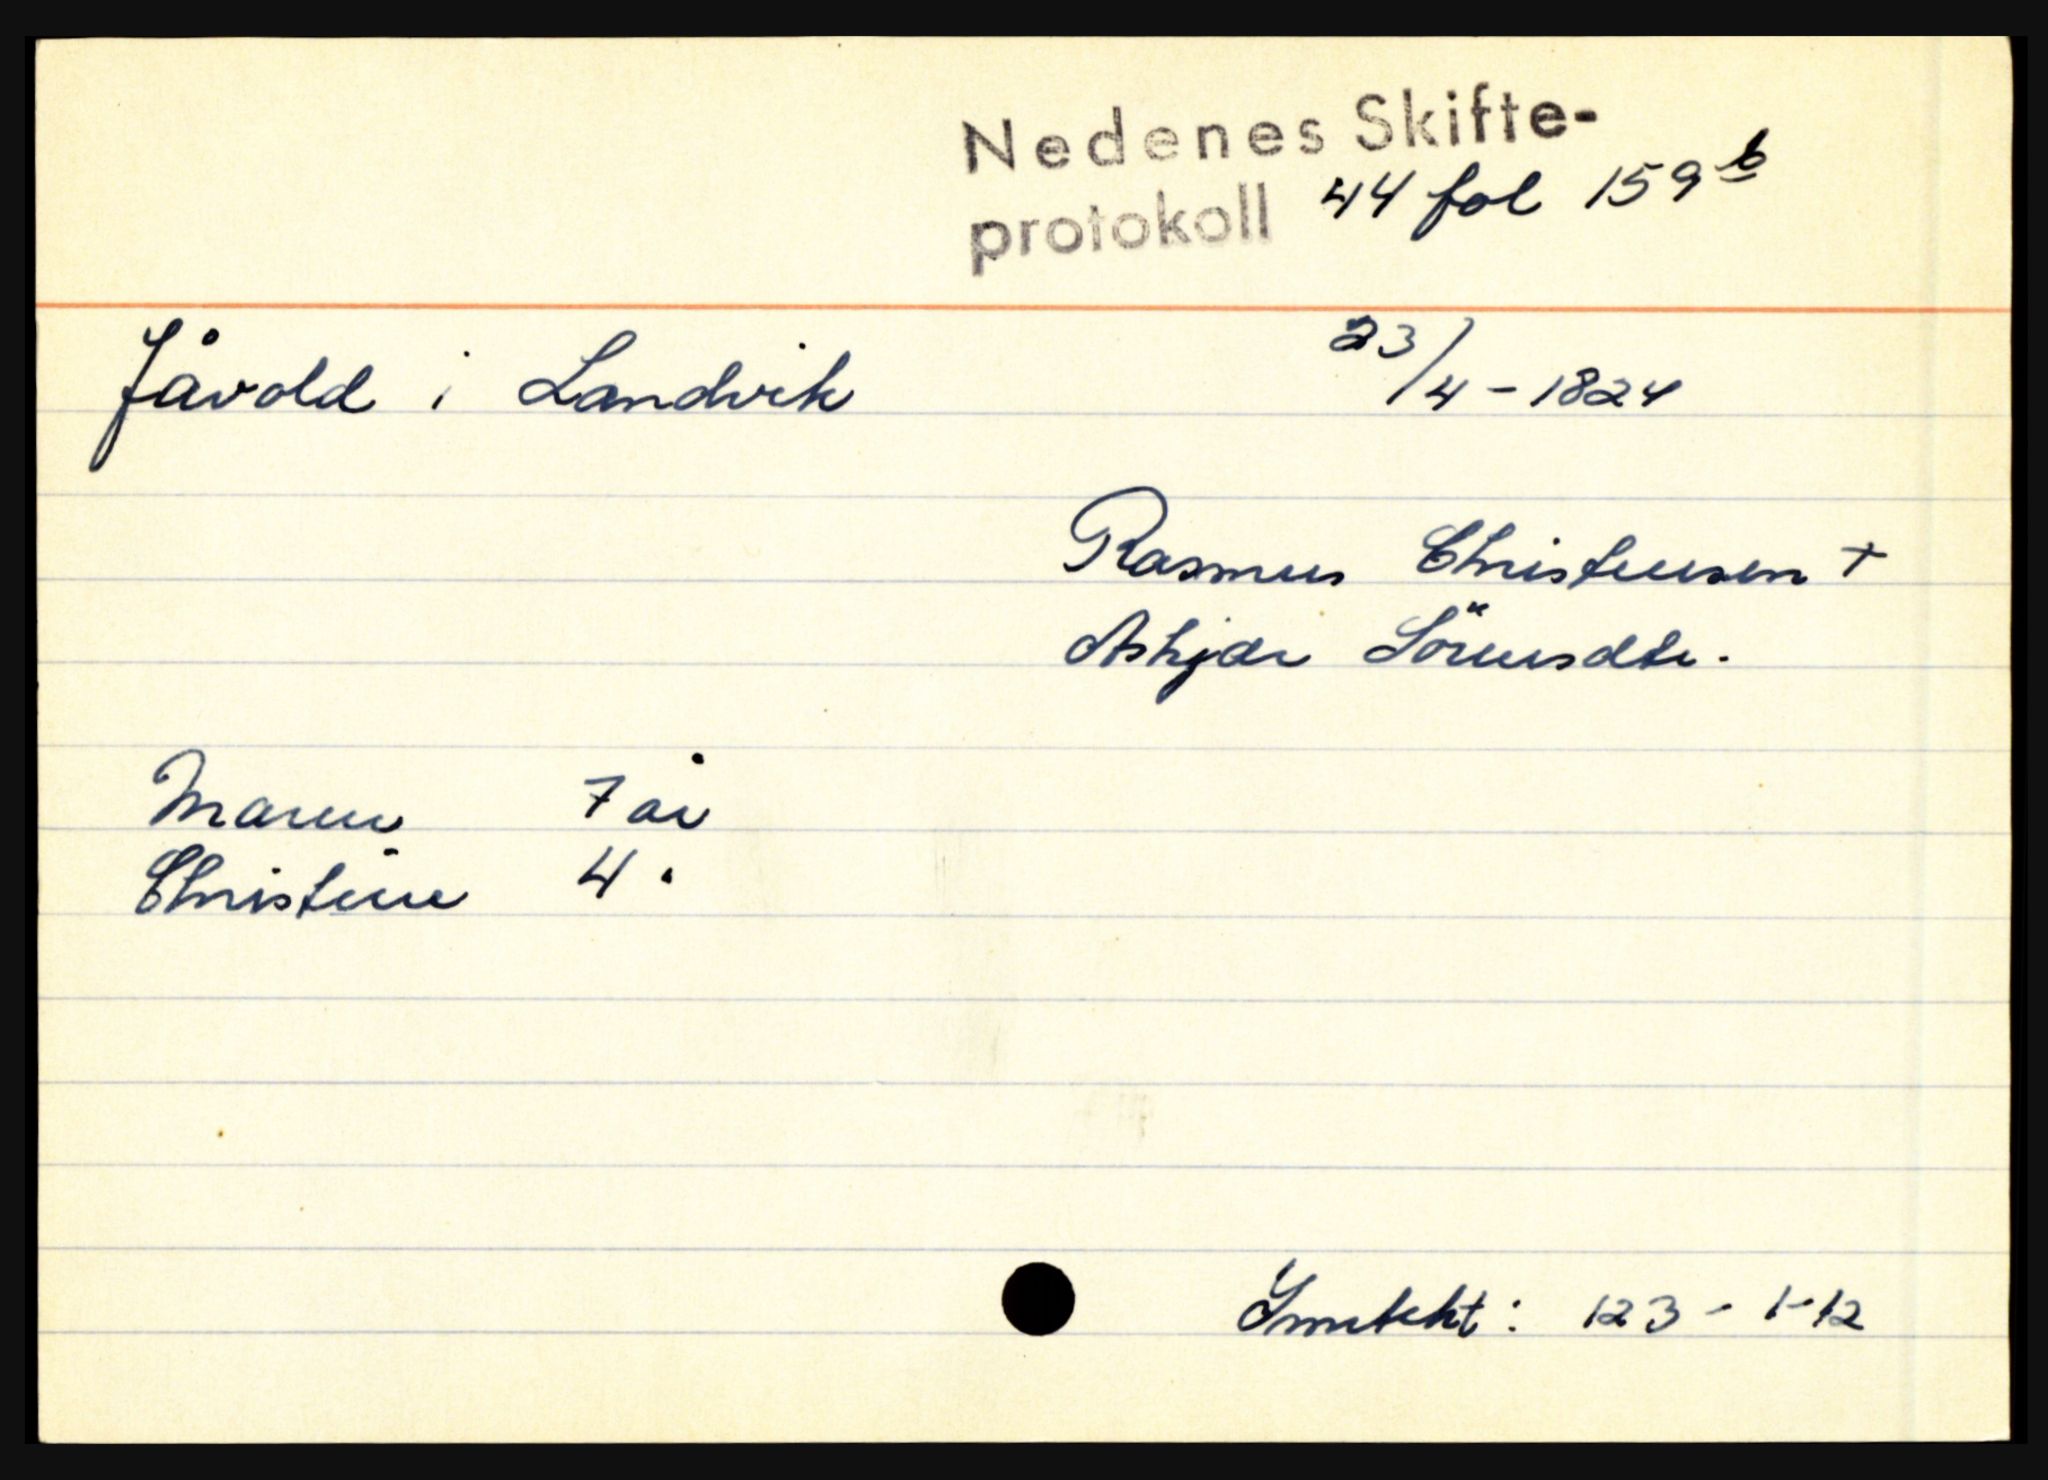 Nedenes Skifte-
protokoll 44 fol 159 b
Jåvold i Landvik 23/4-1824
Rasmus Christensen +
Askjær Sörensdtr.
Maren 7 år
Christine 4 "
Inntekt: 123-1-12